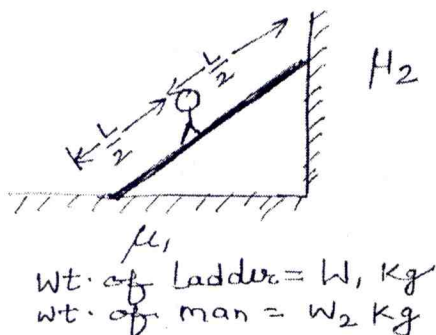 L/2
L/2
μ2
μ1
wt. of Ladder = W1 Kg
wt. of man = W2 Kg